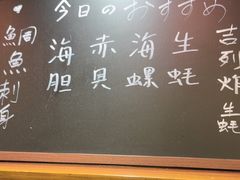 今日のおすすめ
吉列炸生蚝
生蚝
海螺
赤貝
海胆
・鯛魚刺身